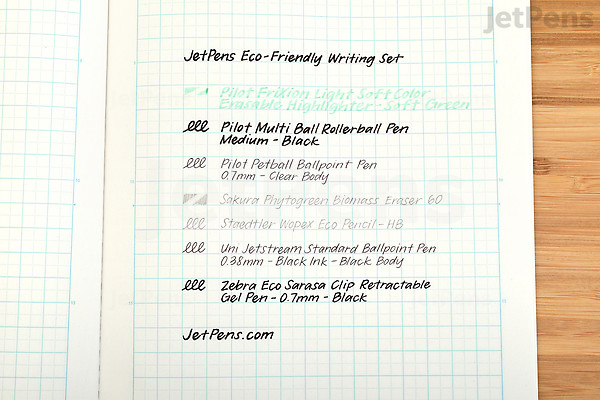 JetPens
JetPens Eco-Friendly Writing Set
Pilot FriXion Light Soft Color
Erasable Highlighter - Soft Green
Pilot Multi Ball Rollerball Pen
Medium - Black
Pilot Petball Ballpoint Pen
0.7mm - Clear Body
Sakura Phytogreen Biomass Eraser 60
Staedtler Wopex Eco Pencil - HB
Uni Jetstream Standard Ballpoint Pen
0.38mm - Black Ink - Black Body
Zebra Eco Sarasa Clip Retractable
Gel Pen - 0.7mm - Black
JetPens.com